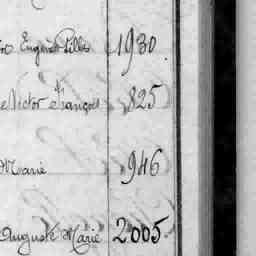 Eugène Gilles 1930
Victor François 825
Marie 946
Auguste Marie 2005